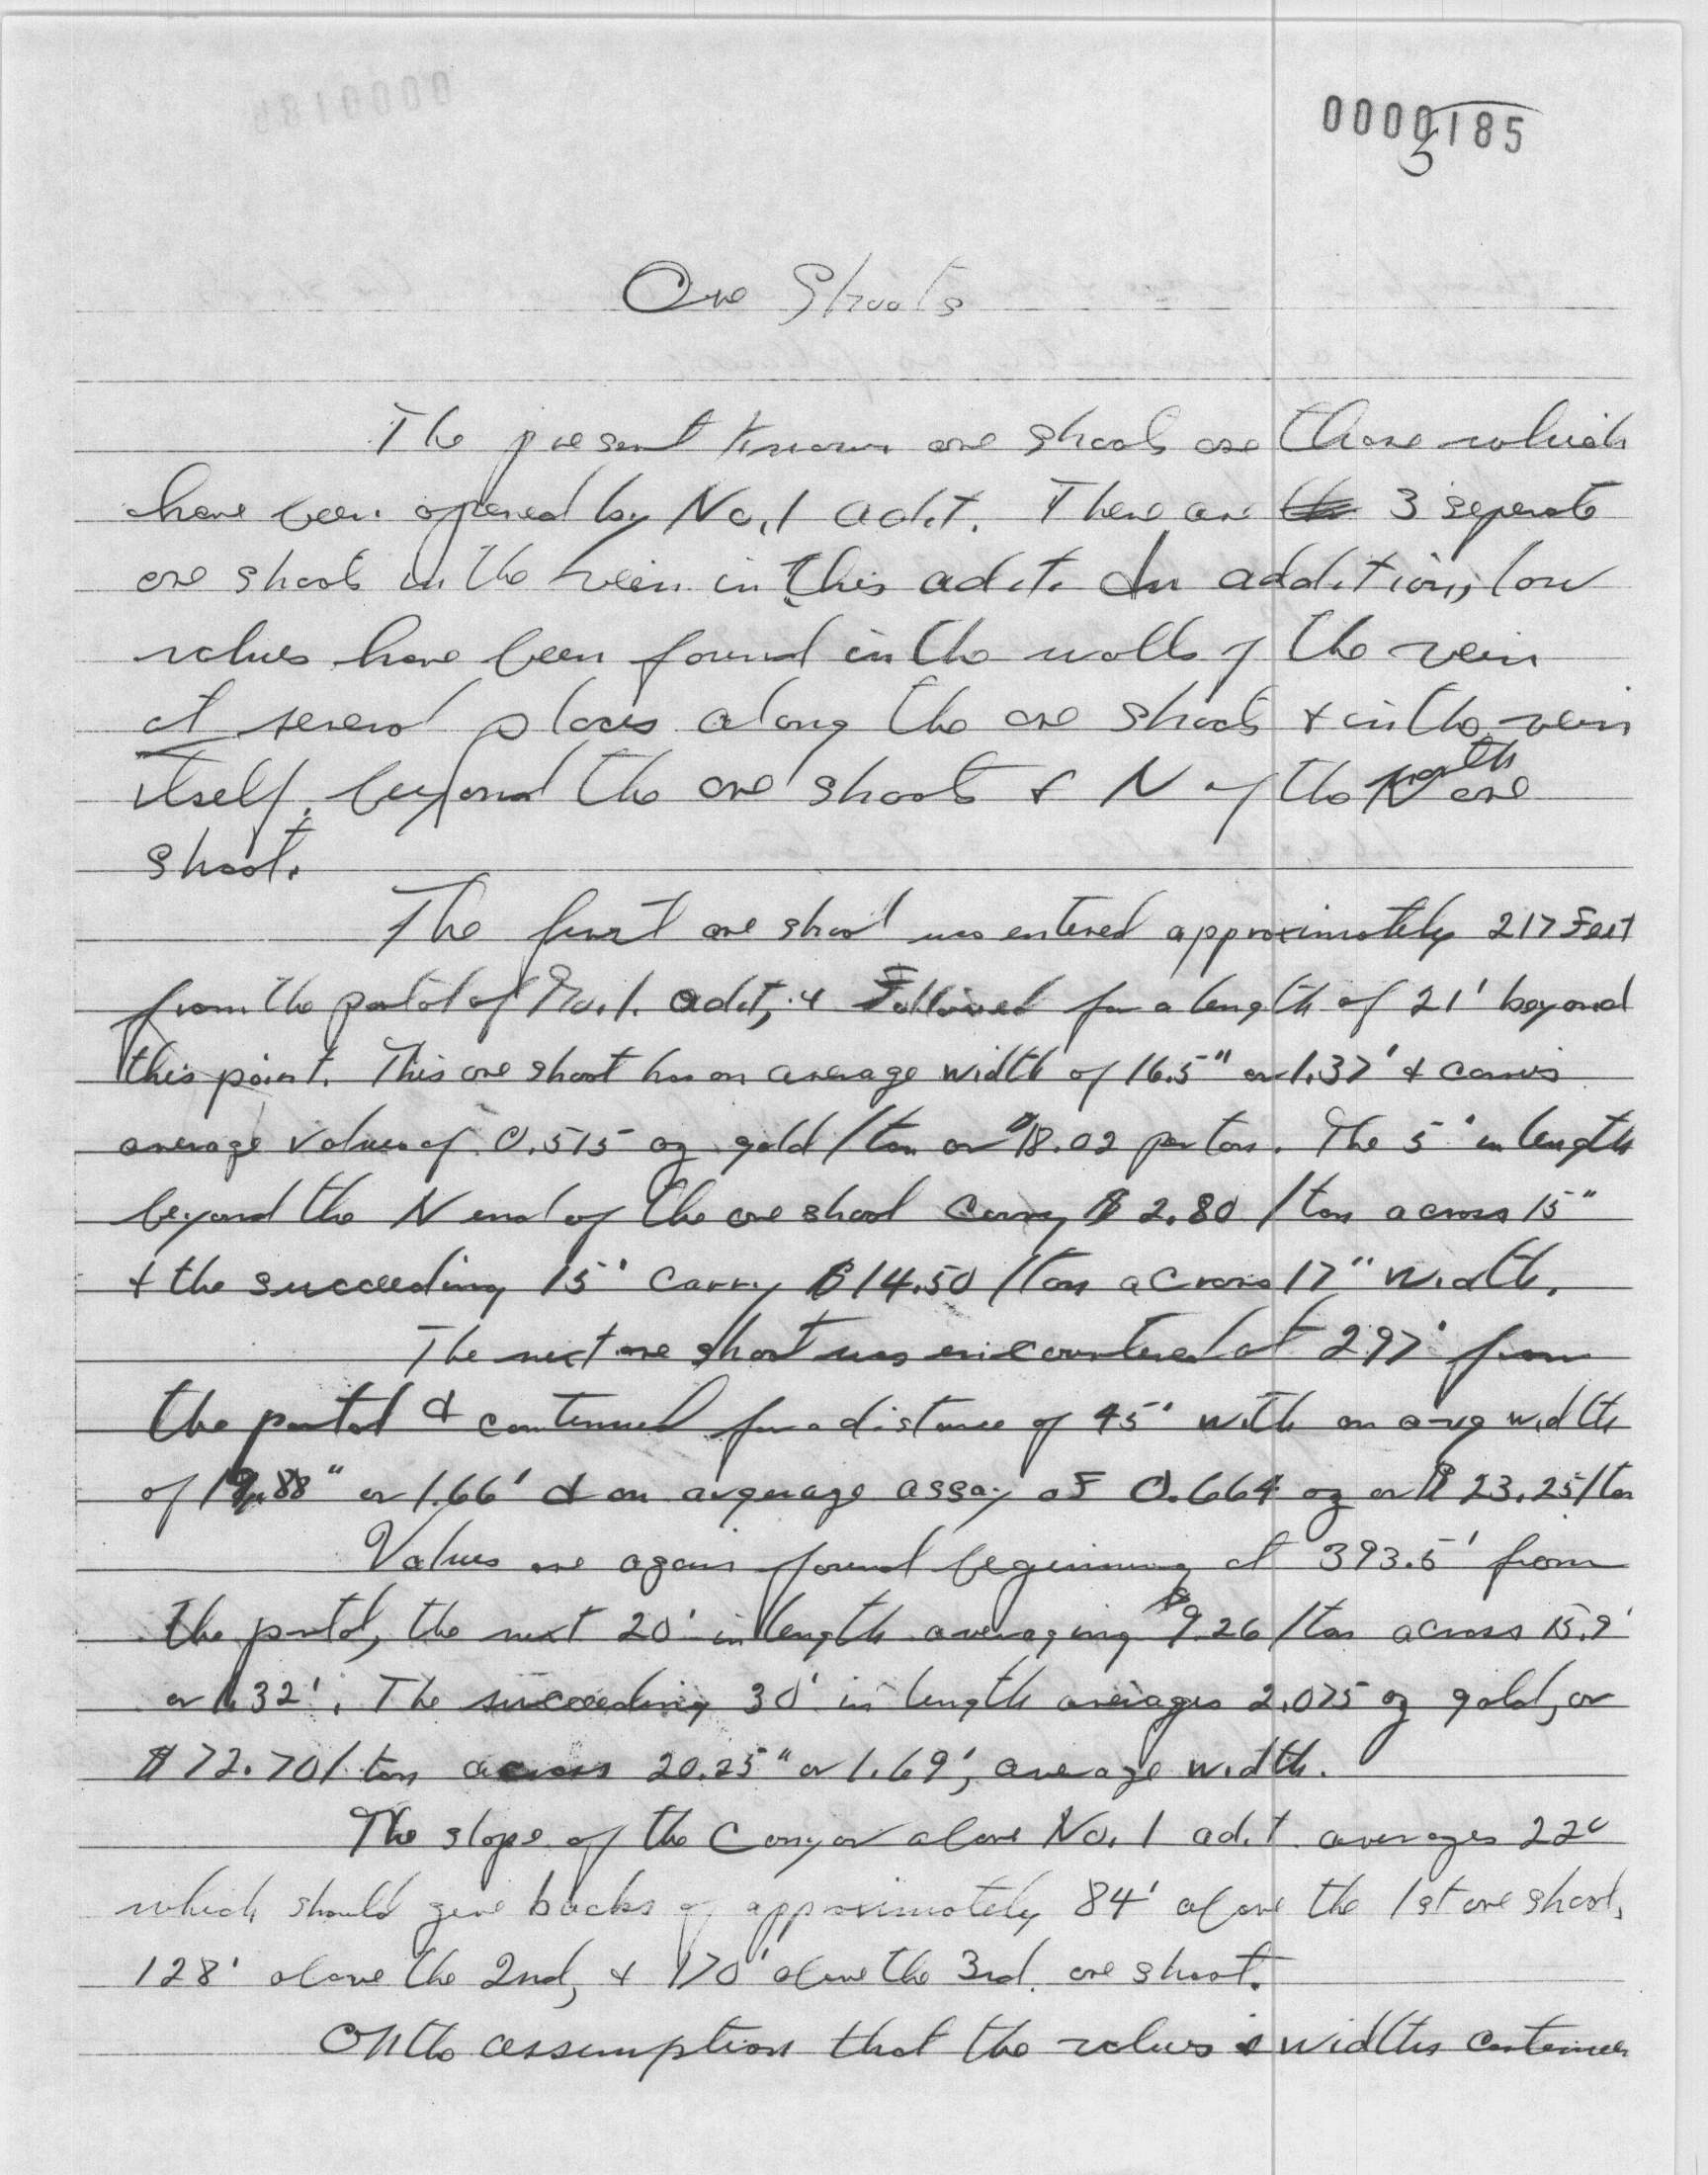 0000185
5
Ore Shoots
The present known ore shoots are those which
have been opened by No. 1 adit. There are 3 seperate
ore shoots in the vein in this adit. In addition, low
values have been found in the walls of the vein
at several places along the ore shoots & in the vein
itself, beyond the ore shoots & N of the north ore
shoot.
The first ore shoot was entered approximately 217 Feet
from the portal of No. 1. adit, & Followed for a length of 21' beyond
this point. This ore shoot has an average width of 16.5" or 1.37' & carries
average values of 0.515 oz gold/ton or $18.02 per ton. The 5' in length
beyond the N end of the ore shoot carry $2.80/ton across 15"
& the succeeding 15' carry $14.50/ton across 17" width.
The next ore shoot was encountered at 297' from
the portal & continued for a distance of 45' with an avg width
of 19.88" or 1.66' & an average assay of 0.664 oz or $23.25/ton
Values are again found beginning at 393.5' from
the portal, the next 20' in length averaging $9.26/ton across 15.9'
or 1.32'. The succeeding 30' in length averages 2.075 oz gold, or
$72.70/ton across 20.25" or 1.69', average width.
The slope of the Canyon above No. 1 adit averages 22°
which should give backs of approximately 84' above the 1st ore shoot,
128' above the 2nd, & 170' above the 3rd. ore shoot.
On the assumption that the values & widths continue